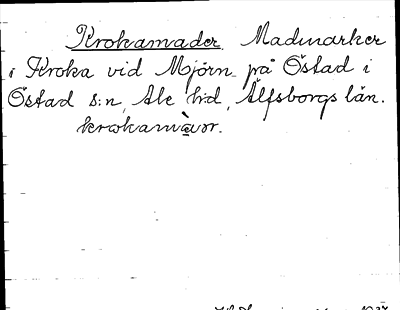 Krokamader Madmarker
i Kroka vid Mjörn på Östad i
Östad s:n, Ale hd, Älfsborgs län.
krokamàvor.